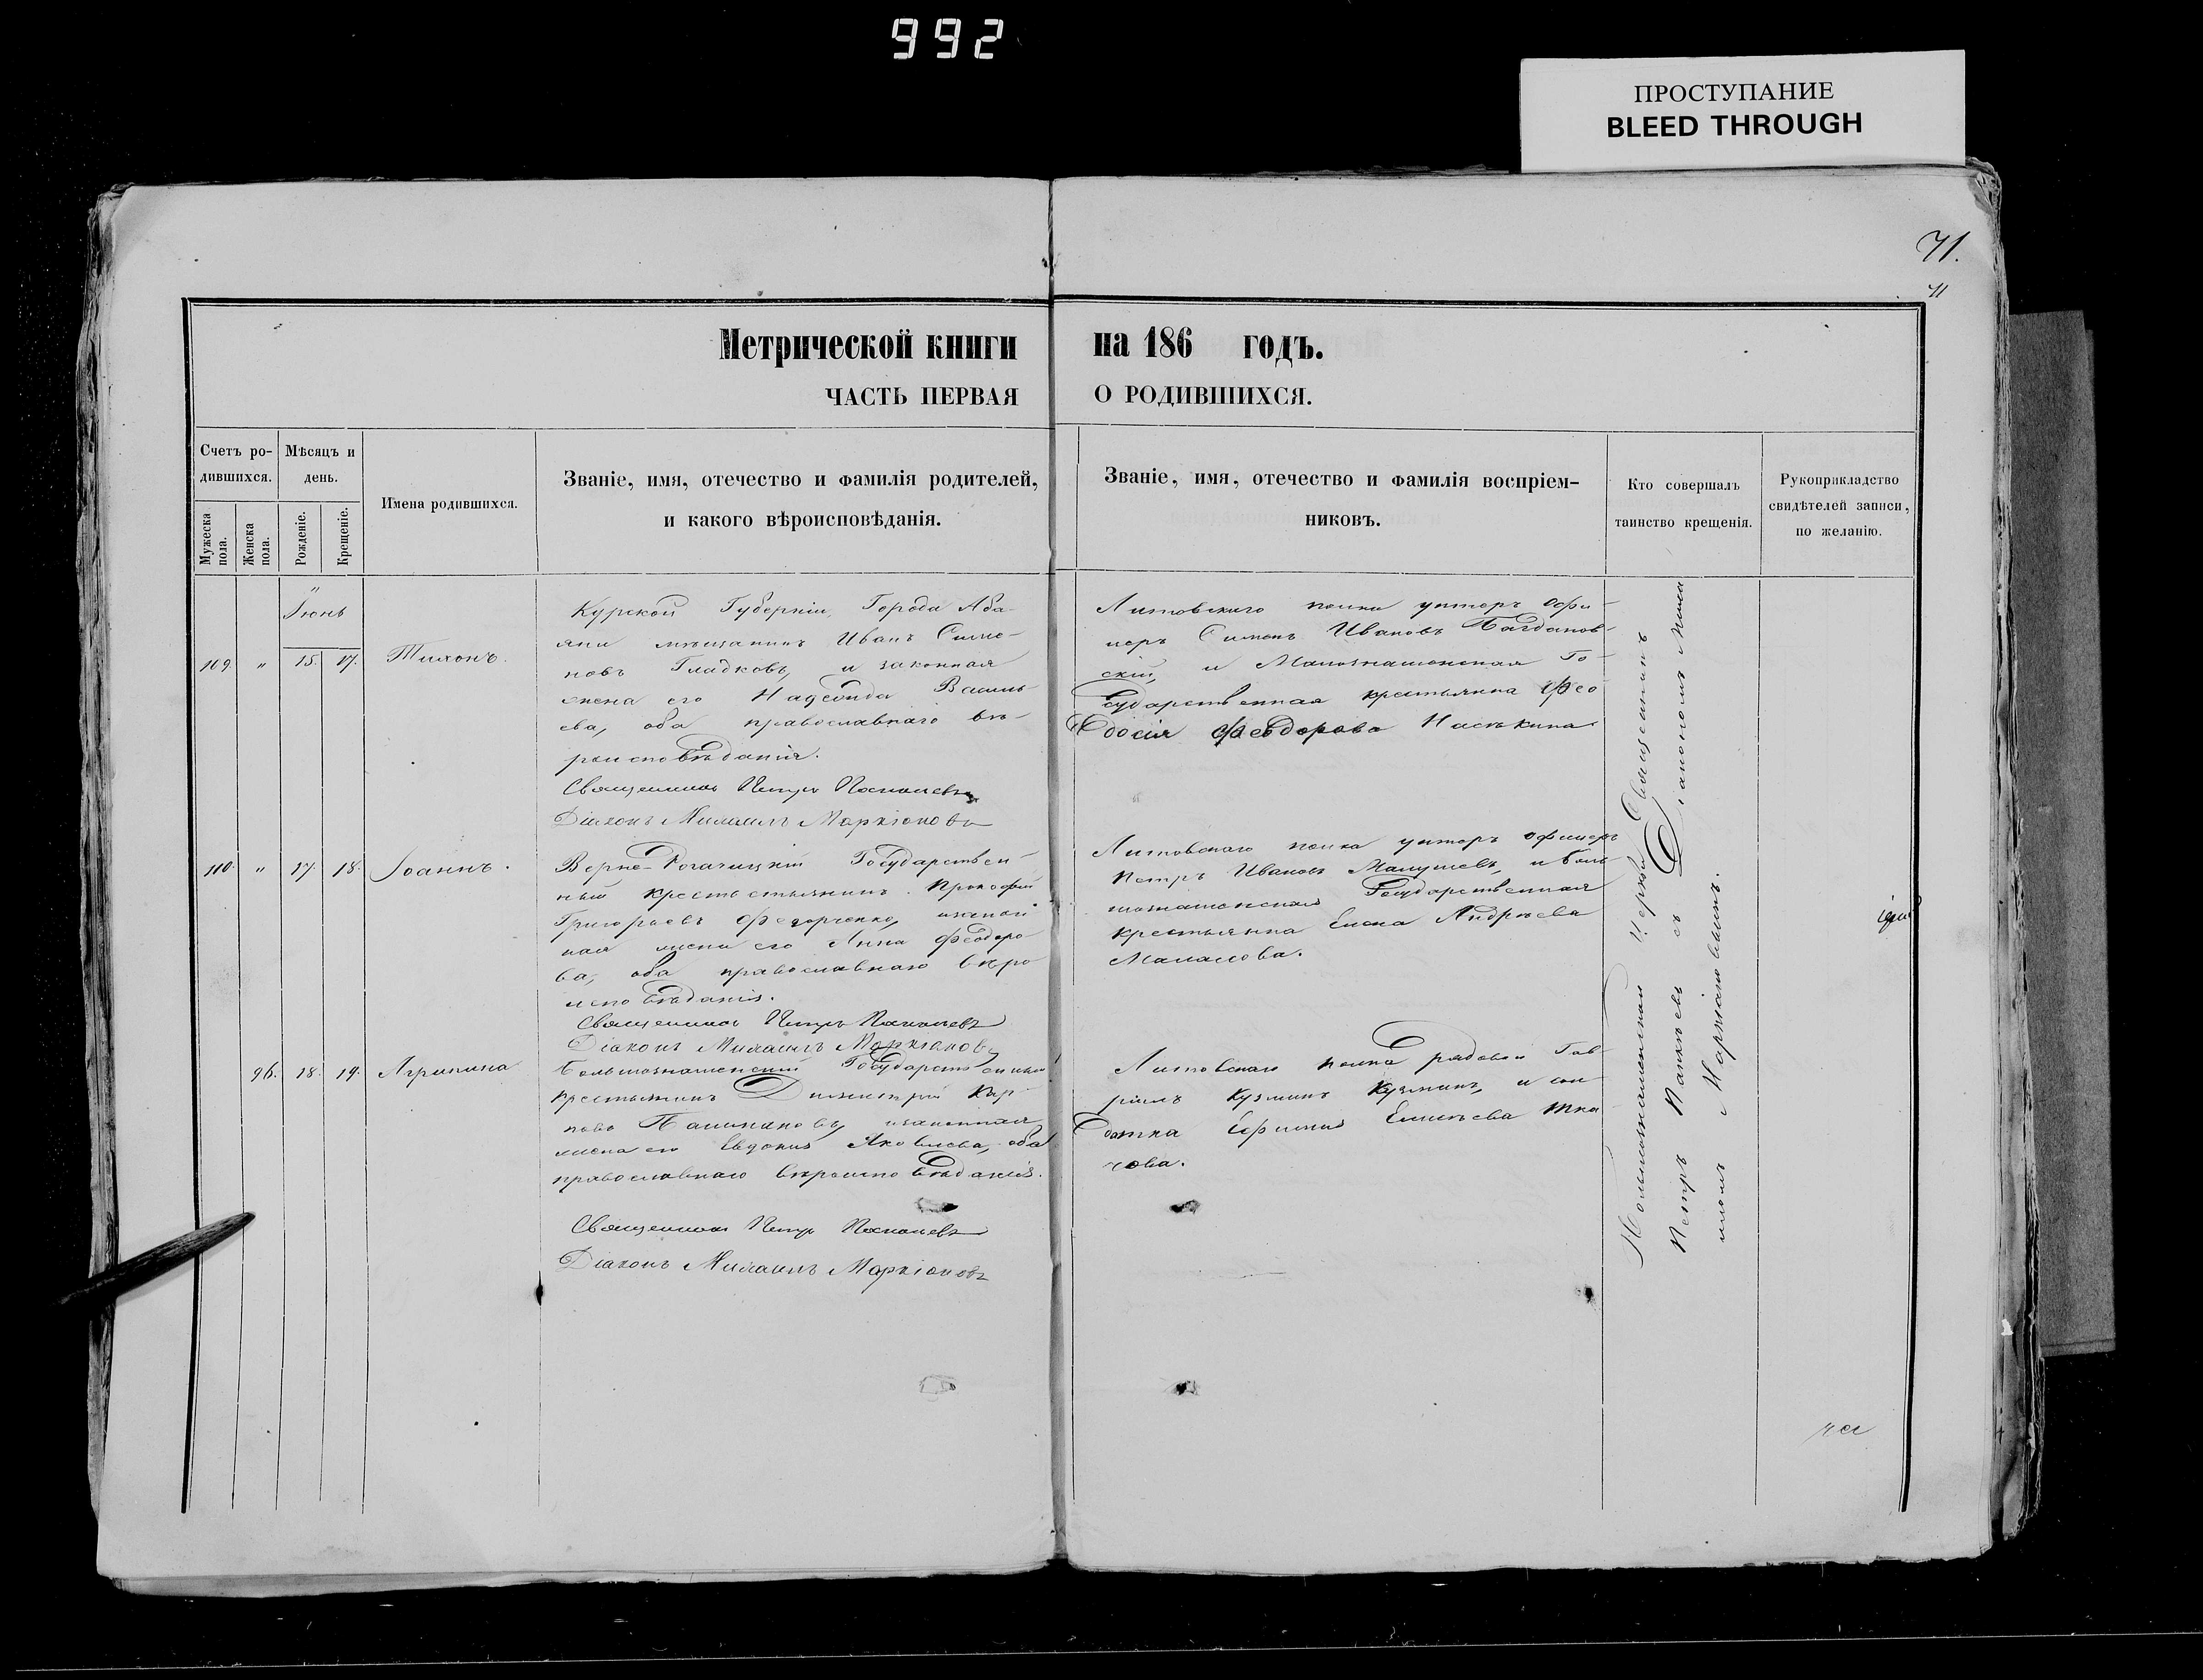 992
ПРОСТУПАНИЕ
BLEED THROUGH
71.
71
Метрической книги на 186 годъ.
ЧАСТЬ ПЕРВАЯ О РОДИВШИХСЯ.
Счетъ ро-
дившихся.
Мужеска
пола.
Женска
пола.
Мѣсяцъ и
день.
Рожденіе.
Крещеніе.
Имена родившихся.
Званіе, имя, отечество и фамилія родителей,
и какого вѣроисповѣданія.
Званіе, имя, отечество и фамилія воспріем-
никовъ.
Кто совершалъ
таинство крещенія.
Рукоприкладство
свидѣтелей записи,
по желанію.
Іюнь
109. " 15. 17. Тихонъ.
Курской Губерніи, Города Абa-
яни мѣщанинъ Иванъ Симо-
новъ Гладковъ, и законная
жена его Надежда Василь-
ева, оба православнаго вѣ-
роисповѣданія.
Священникъ Петръ
Діаконъ Михаилъ Маркіановъ
Литовскаго полка унтеръ офи-
церъ Симонъ Ивановъ Багданов-
скій, и Малознаменская Го-
сударственная крестьянка Фео
досія Феодорова Насѣкина
110. " 17. 18. Іоаннъ.
Верхне-Рогачицкій Государствен-
ный крестьянинъ Прокофій
Григорьевъ Федорченко, и
ная жена его Анна Феодоро-
ва, оба православнаго вѣро
исповѣданія.
Священникъ Петръ
Діаконъ Михаилъ Маркіановъ
Литовскаго полка унтеръ офицеръ
Петръ Ивановъ и Боль
шознаменская Государственная
крестьянка Елена Андрѣева
Маналова.
96. 18. 19. Агрипина
Большознаменскій Государственный
крестьянинъ Димитрій Кар-
повъ и законная
жена его Евдокия Яковлева, оба
православнаго вѣроисповѣданія.
Священникъ Петръ
Діаконъ Михаилъ Маркіановъ
Литовскаго полка рядовой Гав-
ріилъ Кузминъ Кузминъ, и сол
датка Ефимия Елисѣева Тка
чова.
Большознаменской Церкви Священникъ
Петръ съ Діакономъ Миха
иломъ Маркіановымъ.